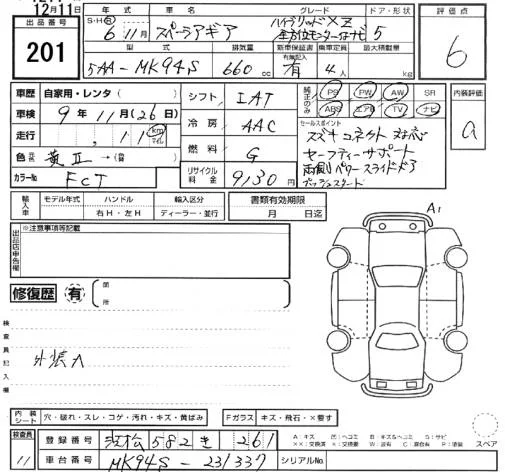 12月11日
出品番号
201
年式 車名 グレード ドア・形状 評価点
S・H・R 6年 11月 スペーシアギア ハイブリッドXZ 全方位モニター付ナビ 5
型式 排気量 新車保証書 乗車定員 最大積載量
有無記入
5AA-MK94S 660cc 有 4人 kg
6
車歴 自家用・レンタ( )
シフト IAT
純正のみ PS PW AW SR
ABS エアB TV ナビ
内装評価
a
車検 9年11月(26日)
冷房 AAC
セールスポイント
スズキコネクト対応
セーフティーサポート
両側パワースライドドア
プッシュスタート
走行 , 11 km マイル
燃料 G
色 元色 黄II→(替 )
リサイクル料金 9130円
カラーNo FCT
輸入車 モデル年式 ハンドル 輸入区分 書類有効期限
右H・左H ディーラー・並行 月 日迄
出品店申告欄
※注意事項等記載
A1
修復歴 有 (箇所 )
検査員記入欄
外装A
内装シート 穴・破れ・スレ・コゲ・汚れ・キズ・黄ばみ
Fガラス キズ・飛石・×要す
検査員
11
登録番号 浜松 582 き 261
車台番号 MK94S-231337
シリアルNo
A:キズ
スペア